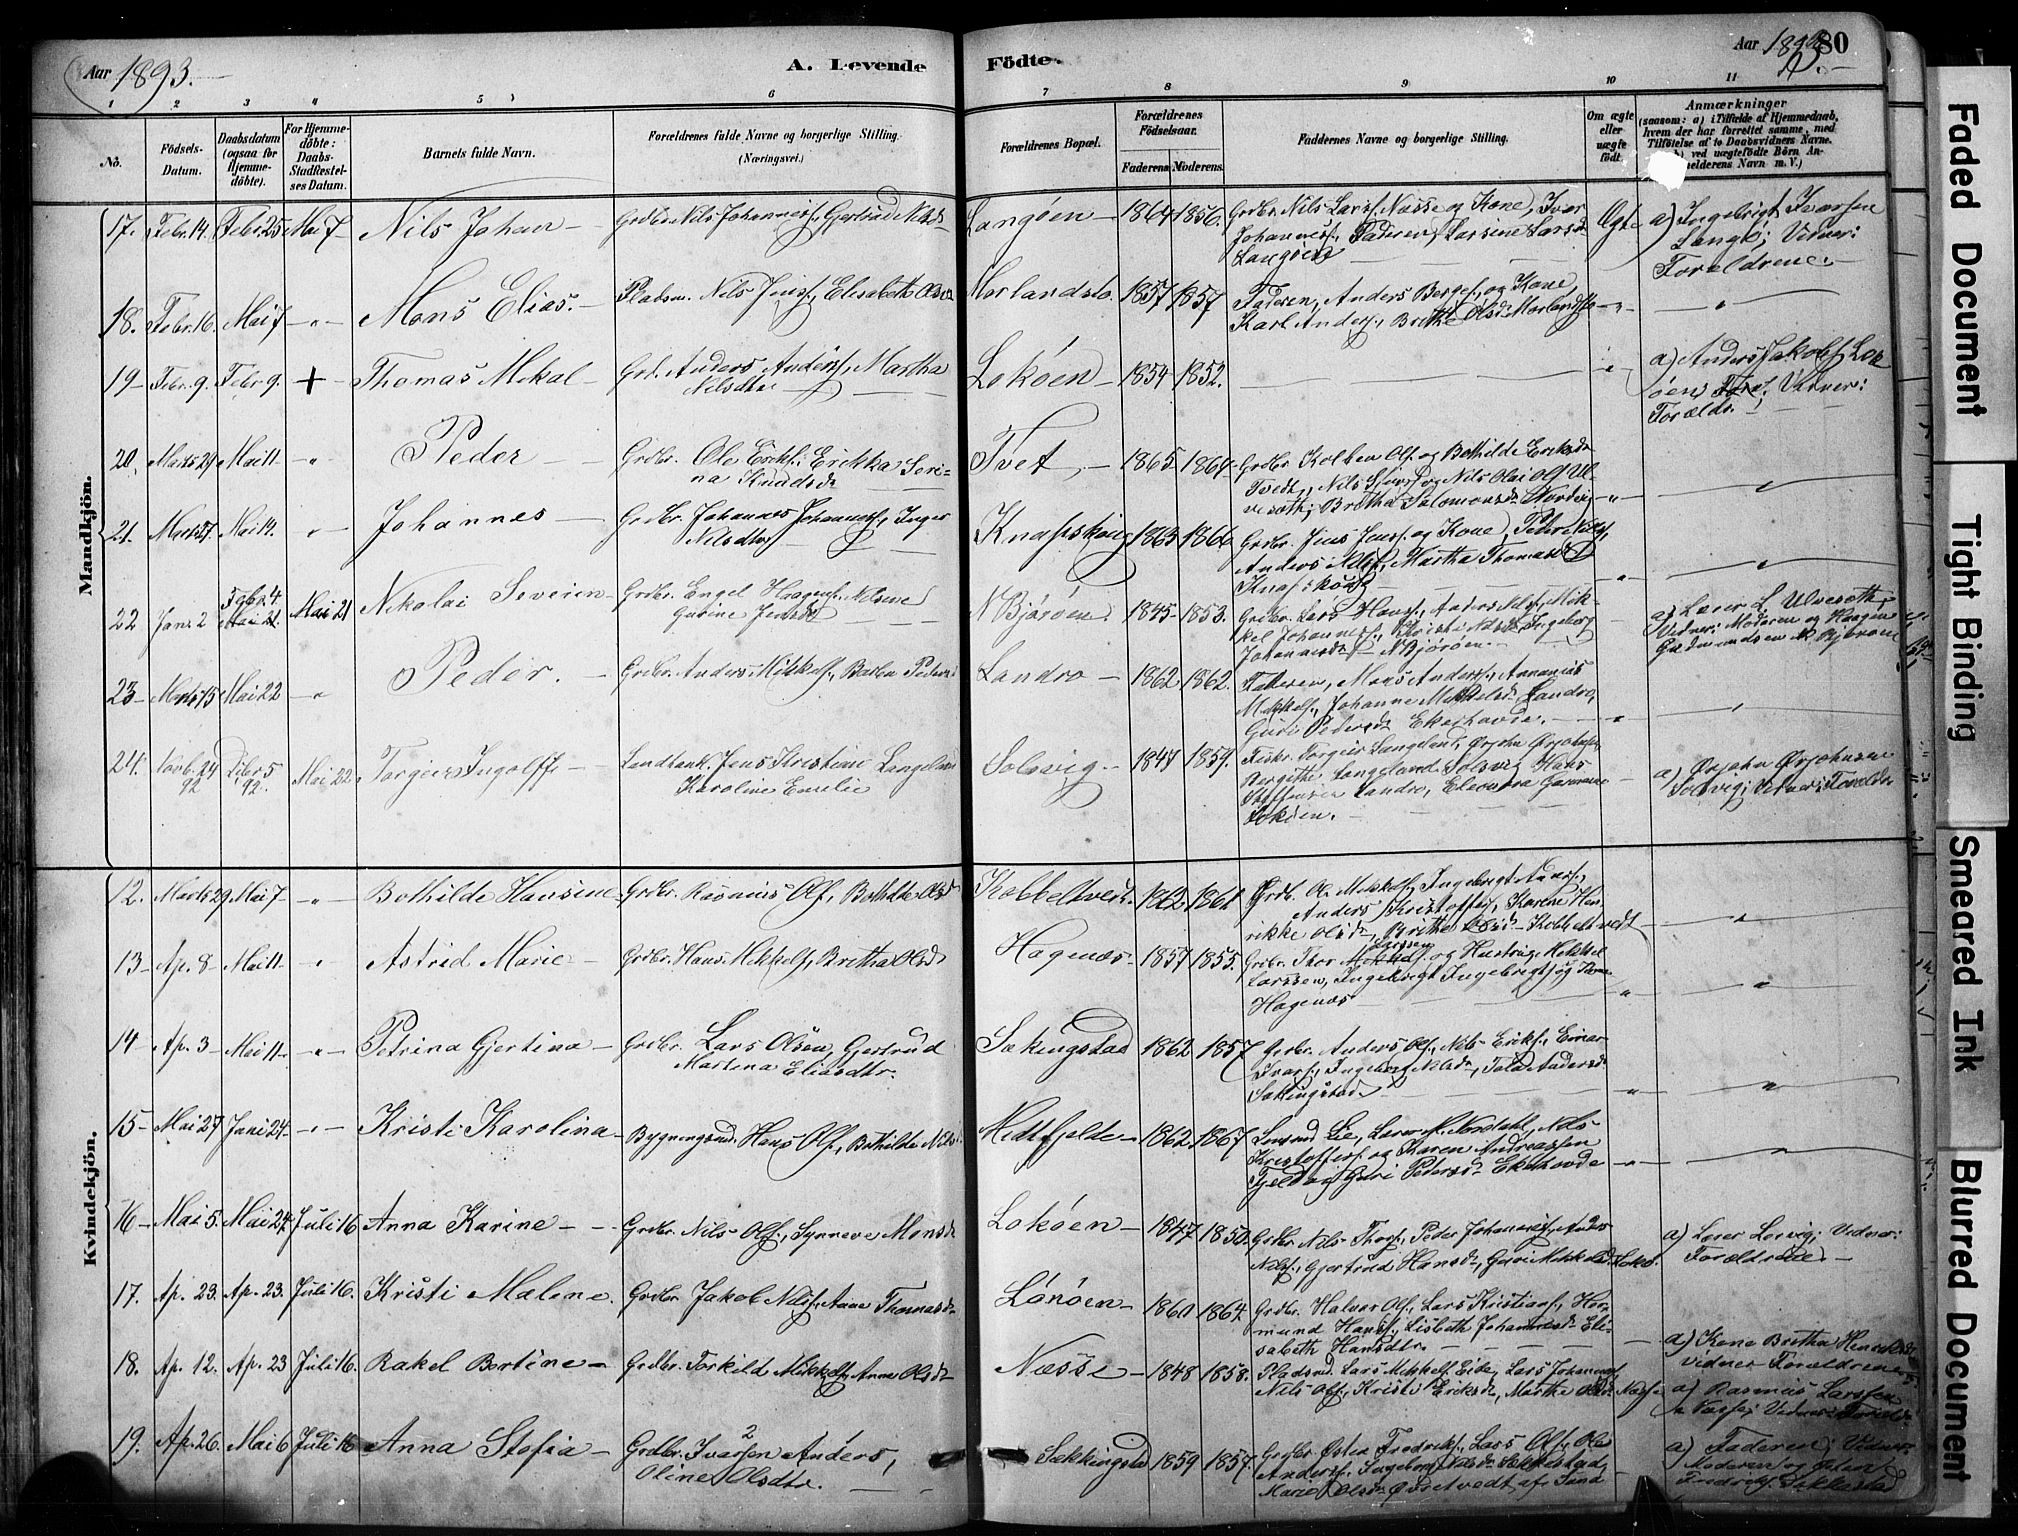 Aar 1893.
A. Levende
Födte.
Aar
80
1 2 3 4 5 6 7 8 9 10 11
No.
Födsels-
Datum.
Daabsdatum
(ogsaa for
Hjemme-
döbte).
For Hjemme-
döbte:
Daabs-
Stadfæstel-
ses Datum.
Barnets fulde Navn.
Forældrenes fulde Navne og borgerlige Stilling.
(Næringsvei.)
Forældrenes Bopæl.
Forældrenes
Födselsaar.
Faderens Moderens.
Faddernes Navne og borgerlige Stilling.
Om ægte
eller
uægte
födt.
Anmærkninger
(saasom: a) i Tilfælde af Hjemmedaab,
hvem der har forrettet samme, med
Tilföielse af to Daabsvidners Navne.
b) ved uægtefödte Börn An-
melderens Navn m. V.)
Mandkjön.
17. Febr. 14. Febr. 25 Mai 7 Nils Johan Grdbr. Nils Johannesf., Gjertrud Nilsd.
Langöen 1864 1856. Grdbr. Nils Larsf. Næsse og Kone, Iver
Johannesf., Faderen, Larsine Larsd.
Langöen
Ægte a) Ingebrigt Ivarsen
Langö; Vidner:
Forældrene.
18. Febr. 16. Mai 7 " Mons Elias. Pladsm. Nils Jensf., Elisabeth Olsd.
Morlandstø. 1857 1857 Faderen, Anders Bergesf., og Kone,
Karl Andersf., Britha Olsd. Morlandstø " "
19 Febr. 9. Febr. 9. + Thomas Mikal Grb. Anders Andersf., Martha
Nilsdtr.
Loköen 1854 1852. " a) Anders Jakobsf. Lok
öen; Vidner:
Foræld.
20. Marts 29 Mai 11 " Peder Grdbr. Ole Eriksf., Erikka Seri-
na Knudsd.
Tvet 1865 1864 Grdbr. Kolben Olsf. og Bothilde Eriksd.
Tvedt, Nils og Nils Olai Olsf. Ul-
veseth; Britha Salomonsd. " "
21. Marts 27. Mai 14. " Johannes Grdbr. Johannes Johannesf., Inger
Nilsdtr.
Knapskoug 1863 1866 Grdbr. Jens Jensf. og Kone, Peder Nilsf.,
Anders Nilsf., Martha Thomasd.
Knapskoug " "
22 Janr. 2 Febr. 4. Mai 21 Nikolai Severin Grdbr. Engel Haagensf., Nilsine
Gurine Jensd.
N Bjøröen. 1845 1853. Grdbr. Lars Hansf., Anders Nilsf., Mik-
kel Johannesf., Kristi Nilsd., Ingeborg
Johannesd. N Bjøröen.
a) Lærer L. Ulveseth;
Vidner: Moderen og Haagen
Gudmundsen N. Bjøröen
23 Marts 15 Mai 22 " Peder. Grdbr. Anders Mikkelsf., Barbra Pedersd.
Landro 1862 1862. Faderen, Mons Andersf., Annanias
Mikkelsf., Johanne Mikkelsd. Landro,
Guri Pedersd. Ekerhovde. " "
24. Novb. 24
92 Dcbr. 5
92. Mai 22 Torgeir Ingolff Landhand. Jens Kristian Langeland
Karoline Emelie
Solsvig. 1847 1859. Fiskr. Torgeir Langeland, Ørjahn Ørjahnsen
Bergithe Langeland Solsvig, Hans
Steffensen Landro, Eleonora
Loköen.
a) Ørjahn Ørjahnsen
Solsvig; Vidner: Foreldr.
Kvindekjön.
12. Marts 29 Mai 7 " Bothilde Hansine Grdbr. Rasmus Olsf., Bothilde Olsd.
Kobbeltvedt. 1862 1861 Grdb. Ole Mikkelsf., Ingebrigt Andersf.,
Anders Kristoffersf., Karene Hen-
rikke Olsd., Britha Olsd. Kobbeltvedt "
13 Ap. 8 Mai 11 " Astrid Marie Grdbr. Hans Mikkelsf., Britha Olsd.
Hagenæs 1857 1855. Grdbr. Thor Larssen og Hustru, Mikkel
Larssen, Ingebrigt Ingebrigtsf. og Kone
Hagenæs " "
14 Ap. 3 Mai 11 " Petrina Gjertina Grdbr. Lars Olsen, Gjertrud
Martina Eliasdtr.
Sækingstad 1862 1857 Grdbr. Anders Olsf., Nils Eriksf., Einar
Ivarsf., Ingeborg Nilsd., Andersd.
Sækingstad " "
15 Mai 27 Juni 24 " Kristi Karolina Bygningsmd. Hans Olsf., Bothilde Nilsd.
Midtfjelde 1862 1867 Lensmd. Lie, Lærer M. Nordahl, Nils
Kristoffersf. og Karen Andreassen
Guri Pedersd. Ekerhovde " "
16 Mai 5. Mai 24. Juli 16 Anna Karine Grdbr. Nils Olsf., Synneve Monsd.
Loköen 1847 1850. Grdbr. Nils Thorsf., Peder Johannesf., Anders
Nilsf., Gjertrud Hansd., Guri Mikkelsd. Lokö.
a) Lærer Lervig; Vidner:
Forældrene
17. Ap. 23. Ap. 23. Juli 16. Kristi Malene Grdbr. Jakob Nilsf., Anne Thomasd.
Lönöen 1860 1864. Grdbr. Halvor Olsf., Lars Kristiansf., Her-
mund Hansf., Lisbeth Johannesd. Eli-
sabeth Hansdtr.
a) Kone Britha Henriksd.
vidner Forældrene
18. Ap. 12. Ap. 23 Juli 16. Rakel Bertine Grdbr. Torkild Mikkelsf., Anna Olsd.
Næsse 1848 1858. Pladsmd. Lars Mikkelsf. Eide, Lars Johannesf.
Nils Olsf., Kristi Eriksd., Marthe Olsd. Næsse
a) Rasmus Larssen
Næsse; Vidner: Foræld.
19. Ap. 26. Mai 6 Juli 16 Anna Sofia Grdbr. Ivarsen Anders,
Oline Olsdtr.
Sækkingstad 1859 1857. Grdbr. Østen Fredriksf., Lars Olsf., Ole
Andersf., Ingeborg Nilsd. Sækkestad,
Marie Olsd. Övretvedt af Sund
a) Faderen; Vidner:
Moderen og
Fredriksf. Sækkestad
Faded Document
Tight Binding
Smeared Ink
Blurred Document